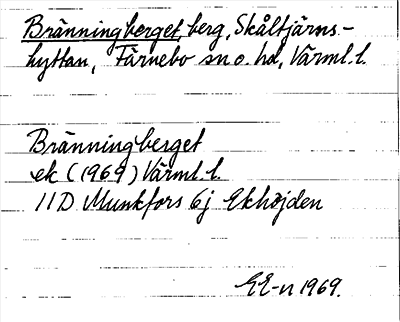 Bränningberget, berg, Skåltjärns-
hyttan, Färnebo sn o. hd, Värml. l.
Bränningberget
ek (1969) Värml. l.
11D Munkfors 6j Ekhöjden
EE-n 1969.